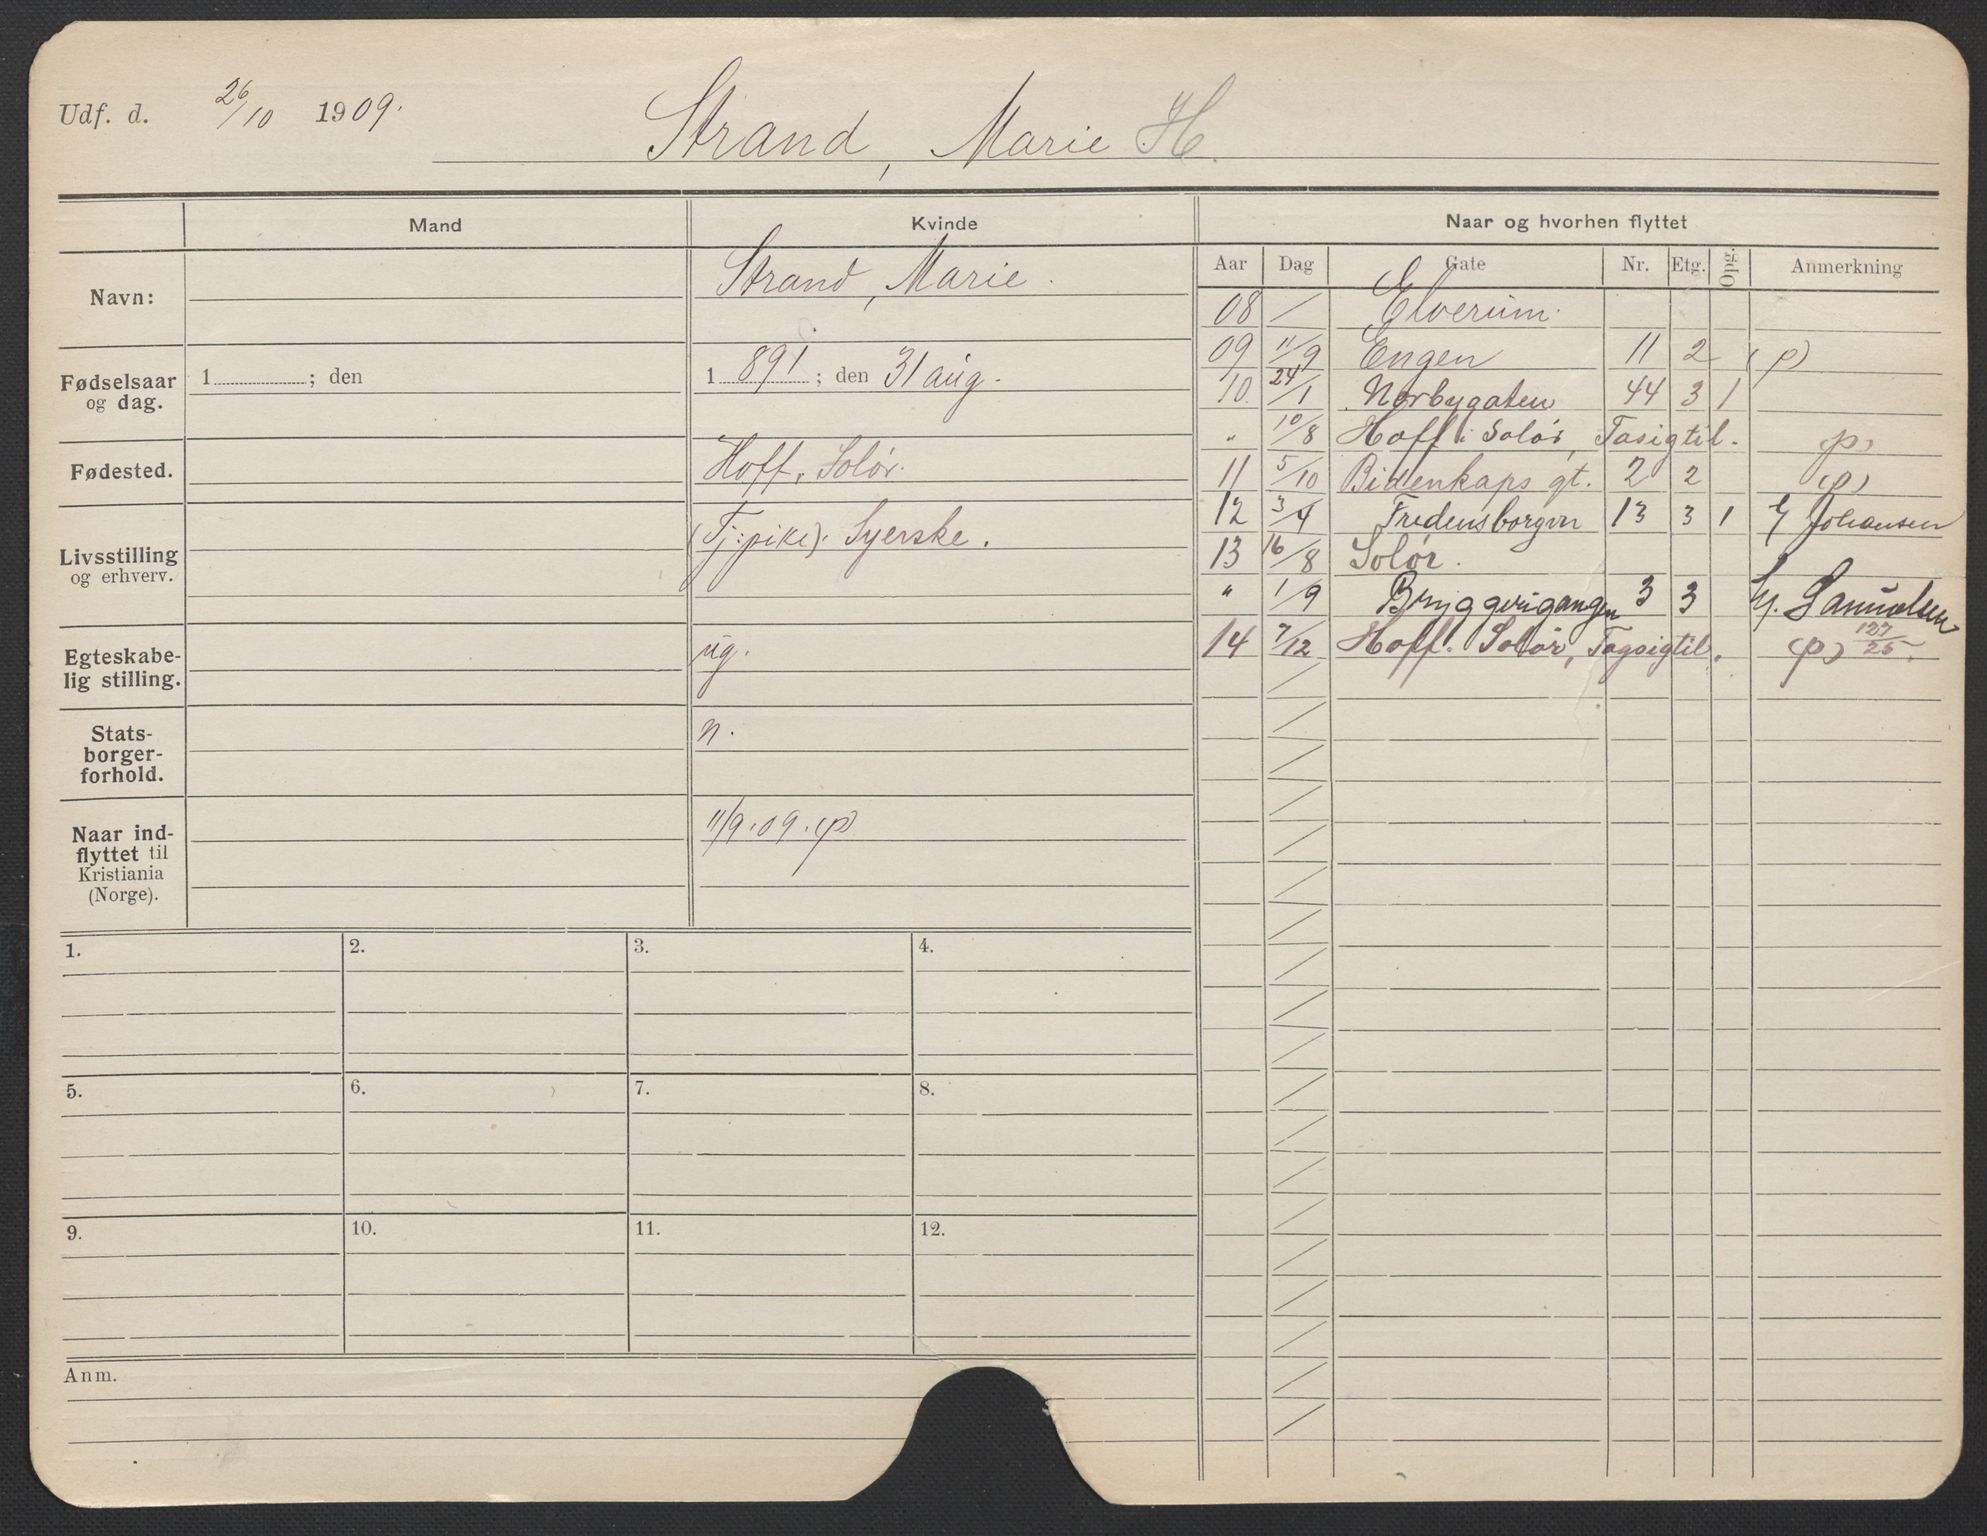 Udf. d. 26/10 1909.
Strand, Marie H.
Mand
Kvinde
Naar og hvorhen flyttet
Aar Dag Gate Nr. Etg. Opg. Anmerkning
Navn:
Strand, Marie.
Fødselsaar og dag.
1 ; den
1891 ; den 31 aug.
Fødested.
Hoff, Solør.
Livsstilling og erhverv.
(Tj.pike). Syerske.
Egteskabe-
lig stilling.
ug.
Stats-
borger-
forhold.
n.
Naar ind-
flyttet til
Kristiania
(Norge).
11/9.09.(p)
08 / Elverum.
09 11/9 Engen 11 2 (p)
10. 24/1 Norbygaten 44 3 1
" 10/8 Hoff i Solør, Tasigtil. (p)
11 5/10 Bidenkaps gt. 2 2 (p)
12 3/4 Fredensborgvn 13 3 1 Johansen
13 16/8 Solør.
" 1/9 Bryggerigangen 3 3 Samuelsen
14 7/12 Hoff. Solør, Tagsigtil. (p) 127/25.
1.
2.
3.
4.
5.
6.
7.
8.
9.
10.
11.
12.
Anm.